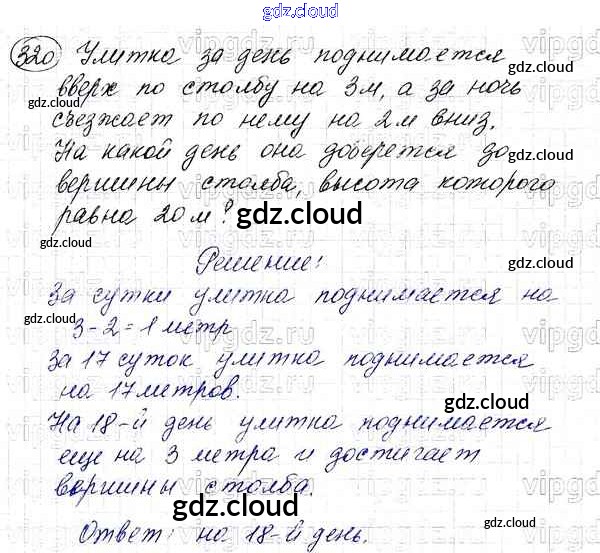 gdz.cloud
320 Улитка за день поднимается
вверх по столбу на 3м, а за ночь
съезжает по нему на 2м вниз.
На какой день она доберется до
вершины столба, высота которого
равна 20 м?
Решение:
За сутки улитка поднимается на
3-2=1 метр
За 17 суток улитка поднимается
на 17 метров.
На 18-й день улитка поднимается
еще на 3 метра и достигает
вершины столба.
Ответ: на 18-й день.
gdz.cloud
gdz.cloud
gdz.cloud
gdz.cloud
gdz.cloud
gdz.cloud
gdz.cloud
gdz.cloud
gdz.cloud
gdz.cloud
gdz.cloud
gdz.cloud
gdz.cloud